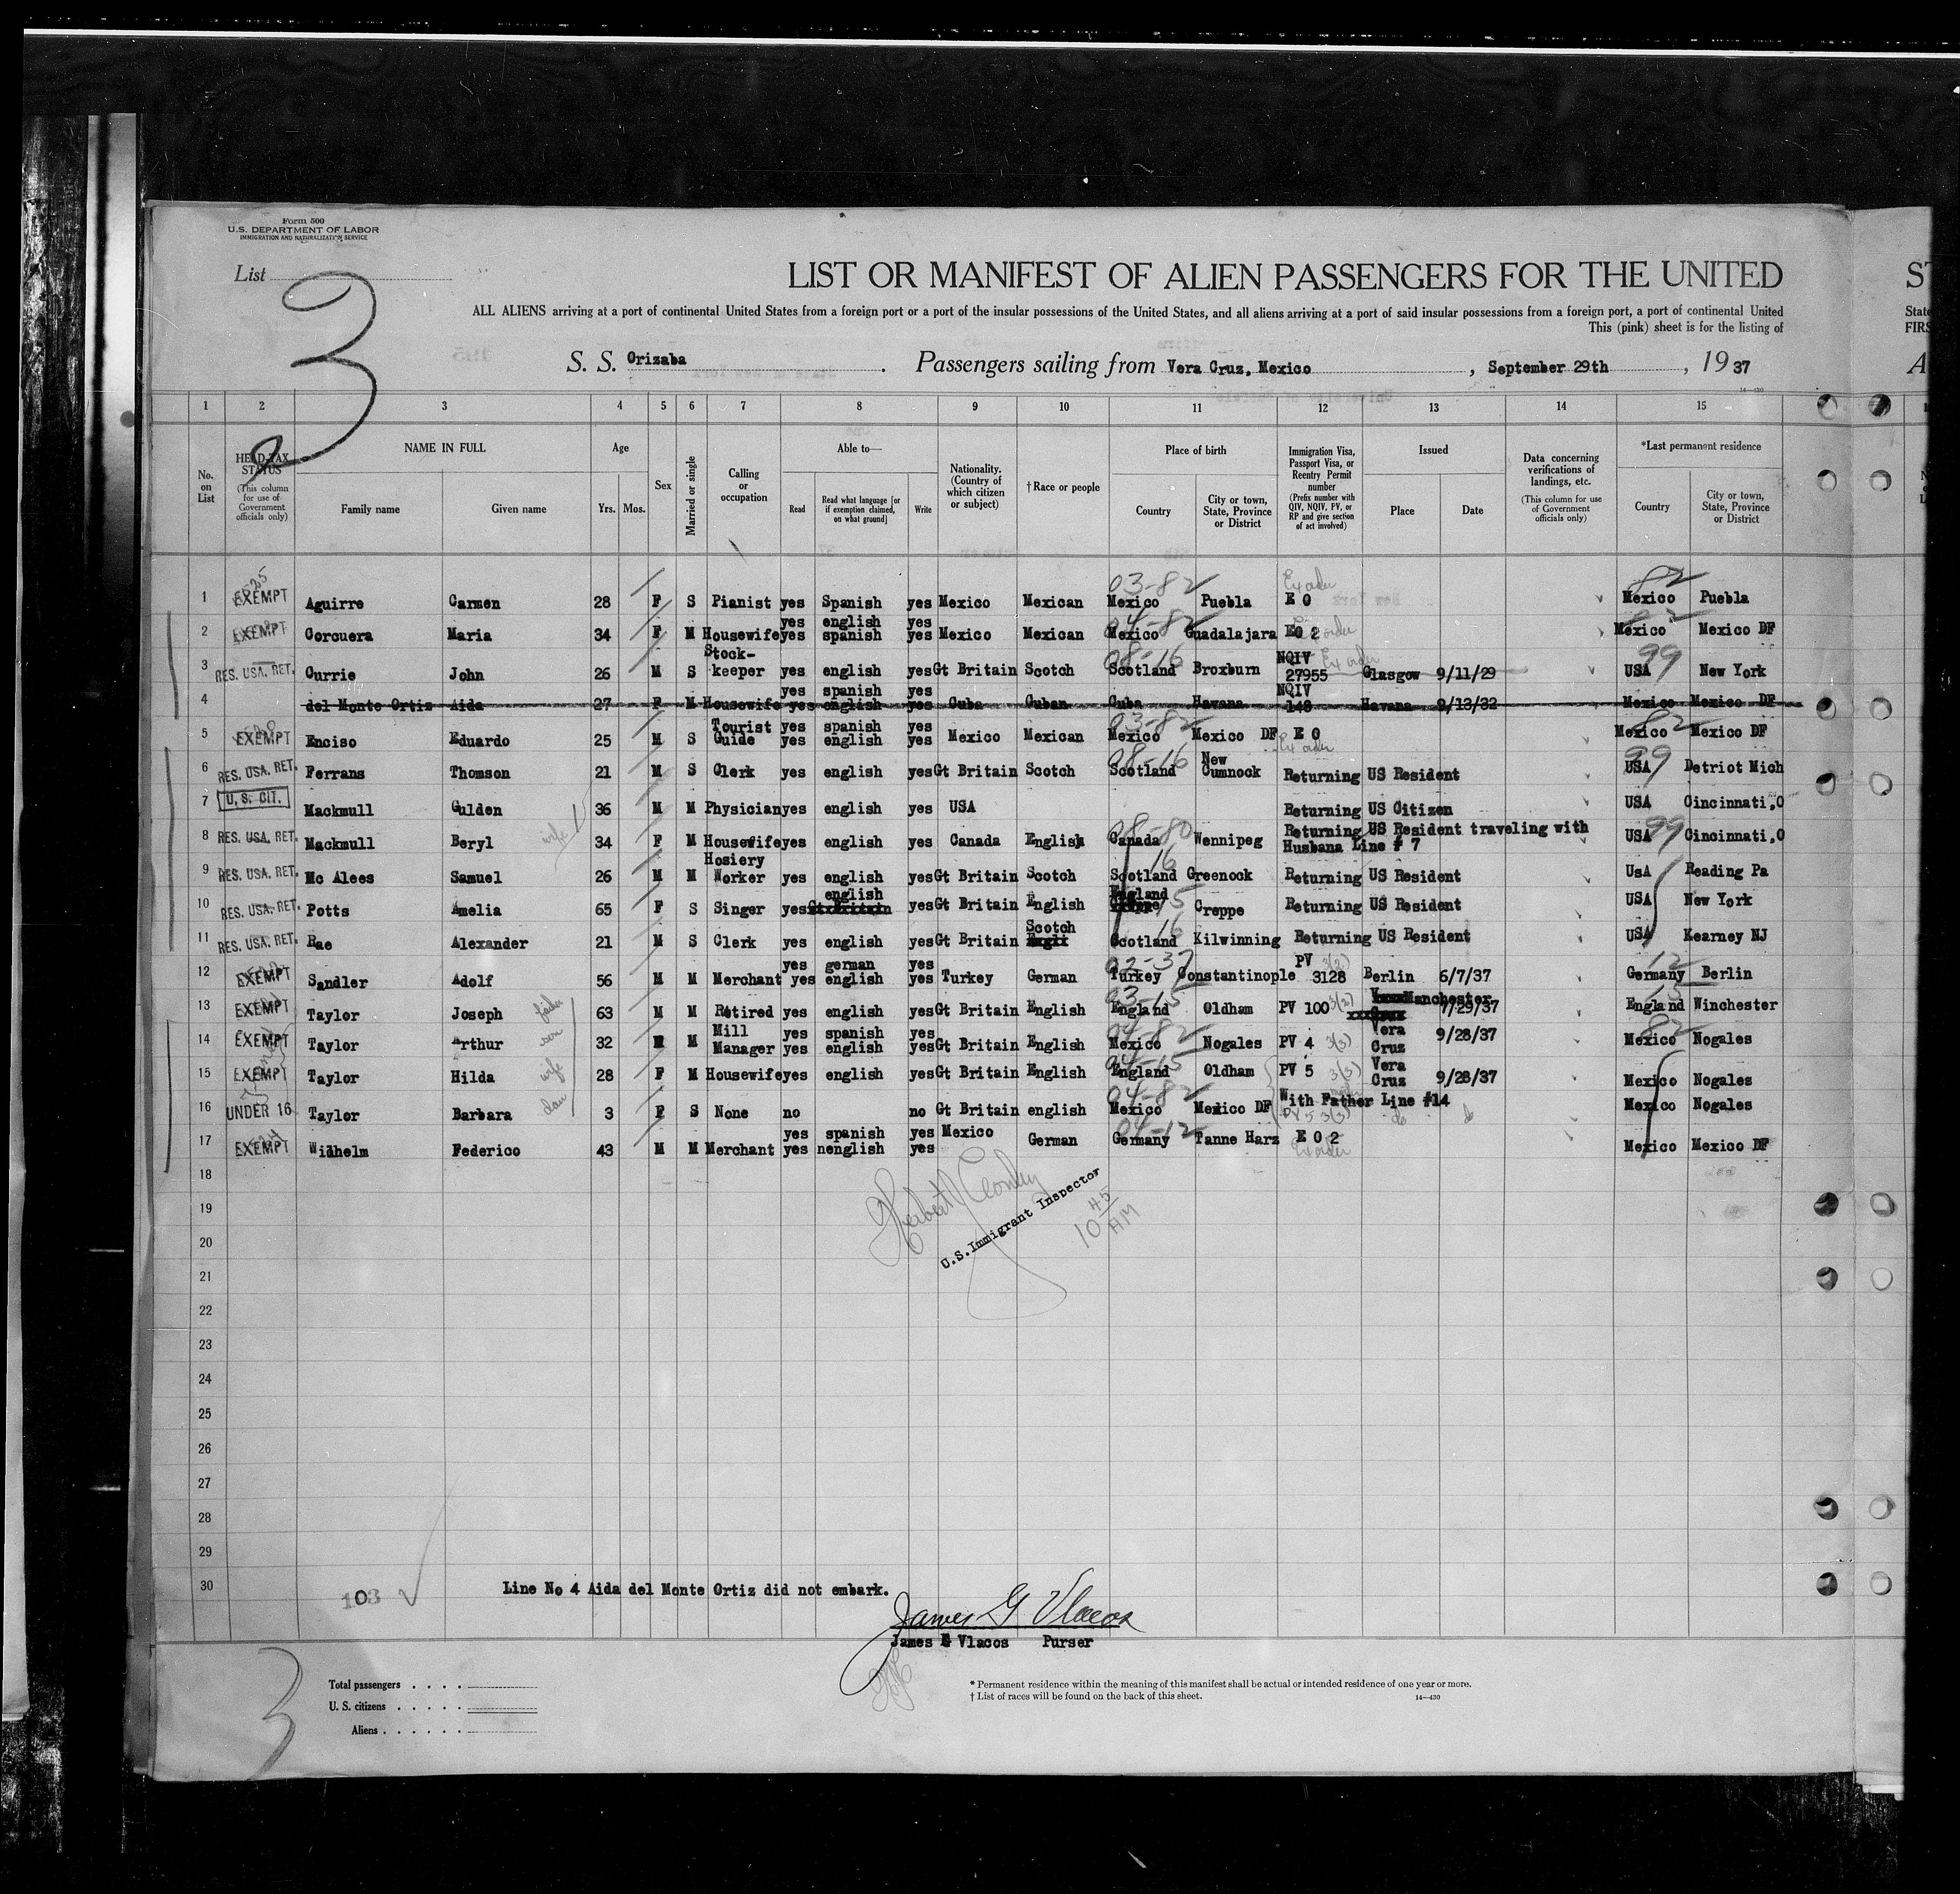 Form 500
U.S. DEPARTMENT OF LABOR
IMMIGRATION AND NATURALIZATION SERVICE
List 3
LIST OR MANIFEST OF ALIEN PASSENGERS FOR THE UNITED
ALL ALIENS arriving at a port of continental United States from a foreign port or a port of the insular possessions of the United States, and all aliens arriving at a port of said insular possessions from a foreign port, a port of continental United
This (pink) sheet is for the listing of
S. S. Orizaba . Passengers sailing from Vera Cruz, Mexico , September 29th , 19 37
14—430
1 2 3 4 5 6 7 8 9 10 11 12 13 14 15
No. on List
HEAD-TAX STATUS (This column for use of Government officials only)
NAME IN FULL Family name Given name
Age Yrs. Mos.
Sex
Married or single
Calling or occupation
Able to— Read Read what language [or if exemption claimed, on what ground] Write
Nationality. (Country of which citizen or subject)
†Race or people
Place of birth Country City or town, State, Province or District
Immigration Visa, Passport Visa, or Reentry Permit number (Prefix number with QIV, NQIV, PV, or RP and give section of act involved)
Issued Place Date
Data concerning verifications of landings, etc. (This column for use of Government officials only)
*Last permanent residence Country City or town, State, Province or District
1 EXEMPT Aguirre Carmen 28 F S Pianist yes Spanish yes Mexico Mexican 03-82 Mexico Puebla E 0 Ex order 82 Mexico Puebla
2 EXEMPT Corcuera Maria 34 F M Housewife yes english yes yes spanish yes Mexico Mexican 04-82 Mexico Guadalajara EO 2 Ex order Mexico Mexico DF
3 RES. USA. RET. Currie John 26 M S Stock-keeper yes english yes Gt Britain Scotch 08-16 Scotland Broxburn NQIV 27955 Ex order Glasgow 9/11/29 99 USA New York
4 del Monte Ortiz Aida 27 F M Housewife yes spanish yes yes english yes Cuba Cuban Cuba Havana NQIV 148 Havana 9/13/32 Mexico Mexico DF
5 EXEMPT Enciso Eduardo 25 M S Tourist Guide yes spanish yes yes english yes Mexico Mexican 03-82 Mexico Mexico DF E 0 Ex order 82 Mexico Mexico DF
6 RES. USA. RET. Ferrans Thomson 21 M S Clerk yes english yes Gt Britain Scotch 08-16 Scotland New Cumnock Returning US Resident 99 USA Detriot Mich
7 U.S. CIT. Mackmull Gulden 36 M M Physician yes english yes USA Returning US Citizen USA Cincinnati,O
8 RES. USA. RET. Mackmull Beryl wife 34 F M Housewife yes english yes Canada English 08-80 Canada Wennipeg Returning US Resident traveling with Husbana Line # 7 USA 99 Cincinnati,O
9 RES. USA. RET. Mc Alees Samuel 26 M M Hosiery Worker yes english yes Gt Britain Scotch 16 Scotland Greenock Returning US Resident UsA Reading Pa
10 RES. USA. RET. Potts Amelia 65 F S Singer yes english yes Gt Britain English England 15 Creppe Returning US Resident USA New York
11 RES. USA. RET. Rae Alexander 21 M S Clerk yes english yes Gt Britain Scotch 16 Scotland Kilwinning Returning US Resident USA Kearney NJ
12 EXEMPT Sandler Adolf 56 M M Merchant yes german yes yes english yes Turkey German 02-37 Turkey Constantinople PV 3128 3(2) Berlin 6/7/37 12 Germany Berlin
13 EXEMPT Taylor Joseph father 63 M M Retired yes english yes Gt Britain English 03-15 England Oldham PV 100 3(2) Manchester 7/29/37 15 England Winchester
14 EXEMPT Taylor Arthur son 32 M M Mill Manager yes spanish yes yes english yes Gt Britain English 04-82 Mexico Nogales PV 4 3(3) Vera Cruz 9/28/37 82 Mexico Nogales
15 EXEMPT Taylor Hilda wife 28 F M Housewife yes english yes Gt Britain English 04-15 England Oldham PV 5 3(3) Vera Cruz 9/28/37 Mexico Nogales
16 UNDER 16 Taylor Barbara dau 3 F S None no no Gt Britain english 04-82 Mexico Mexico DF With Father Line #14 PV 5 3(3) do do Mexico Nogales
17 EXEMPT Wilhelm Federico 43 M M Merchant yes spanish yes yes nenglish yes Mexico German 04-12 Germany Tanne Harz E 0 2 Ex order Mexico Mexico DF
18
19
U.S. Immigrant Inspector
10 45 AM
20
21
22
23
24
25
26
27
28
29
30
103
Line No 4 Aida del Monte Ortiz did not embark.
James G Vlacos
James G Vlacos Purser
3
Total passengers . . . .
U. S. citizens . . . . .
Aliens . . . . . .
* Permanent residence within the meaning of this manifest shall be actual or intended residence of one year or more.
† List of races will be found on the back of this sheet.
14—430